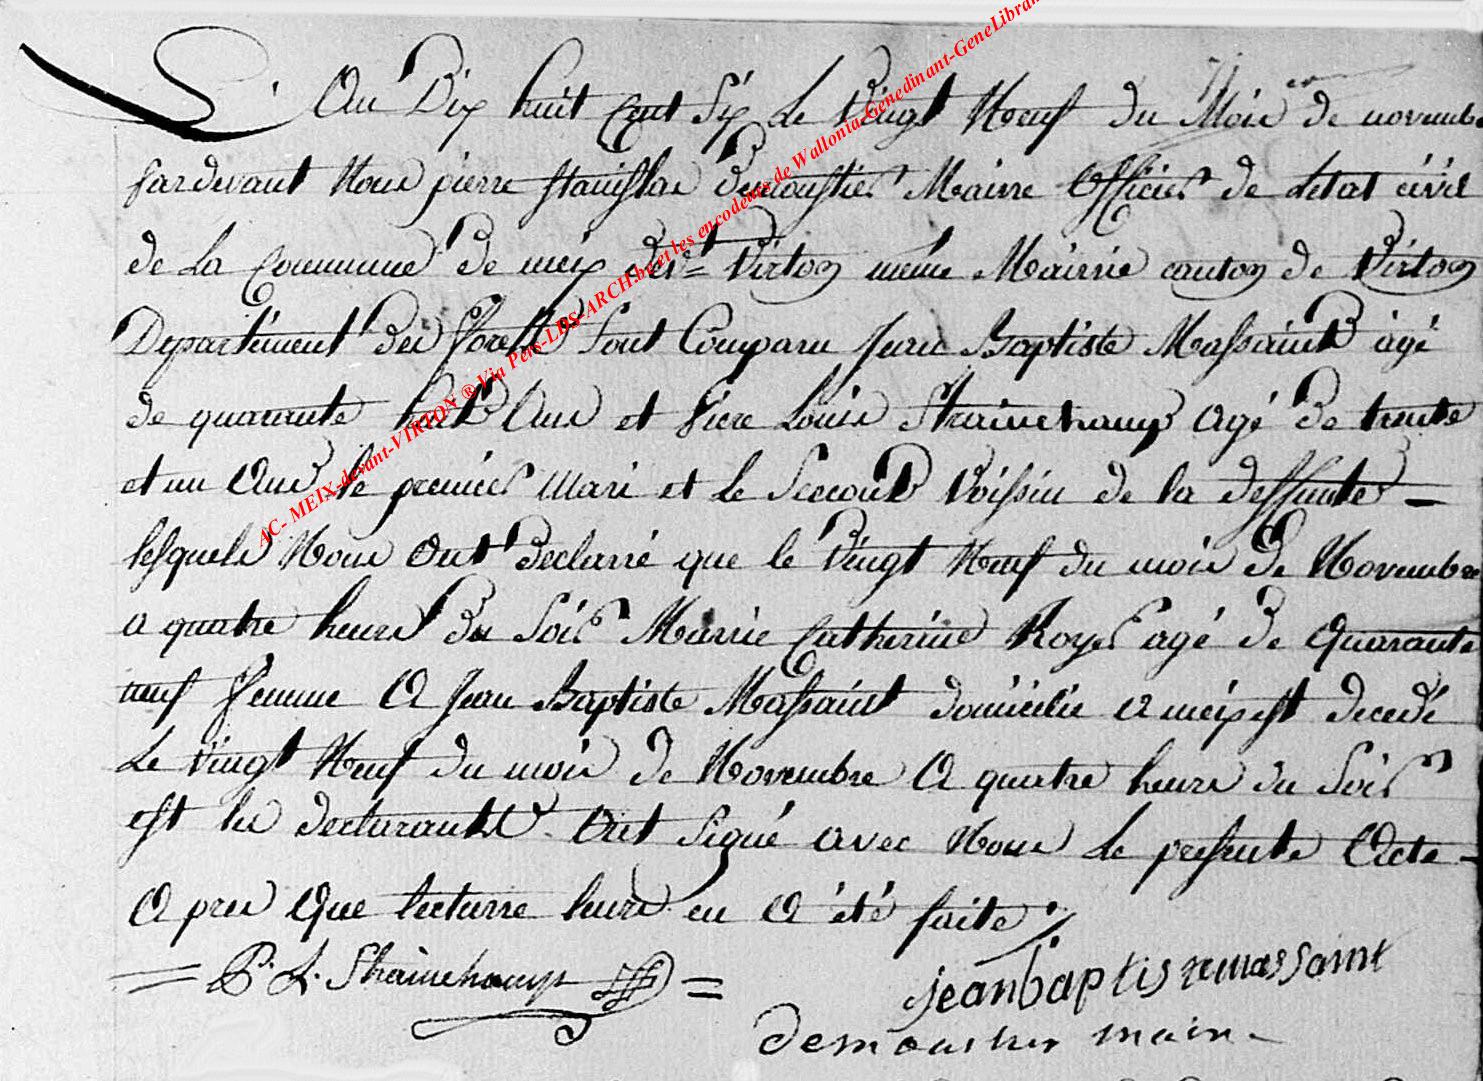 L'An Dix huit Cent Six Le Vingt Neuf du Mois de novembre
Pardevant Nous pierre stanislas Demoustier Mairre Officier de L'etat civil
de La Commune De meix Dev.t Virton même Mairrie canton de Virton
Departement Des Forets Sont Comparu Jean Baptiste Massaint âgé
de quarante huit Ans et Piere Louis Strainchamp Agé De trente
et un Ans le premier Mari et Le Second Voissin de la deffunte
lesquels Nous Ont Declarré que le Vingt Neuf du mois De Novembre
a quatre heures Du Soir Marrie Catherine Royer agé De Quarante
neuf Femme A Jean Baptiste Massaint domicilié A meix est decedé
Le Vingt Neuf du mois de Novembre A quatre heures du Soir
est les declarants Ont Signé avec Nous Le presente Acte
A pres Que lecturre leurs en A été faite
P. L. Strainchamp
jeanbaptiste massaint
demoustier maire
AC- MEIX-devant-VIRTON ® Via Pers-LDS-ARCH.be et les encodeurs de Wallonia-Genedinant-GeneLibran